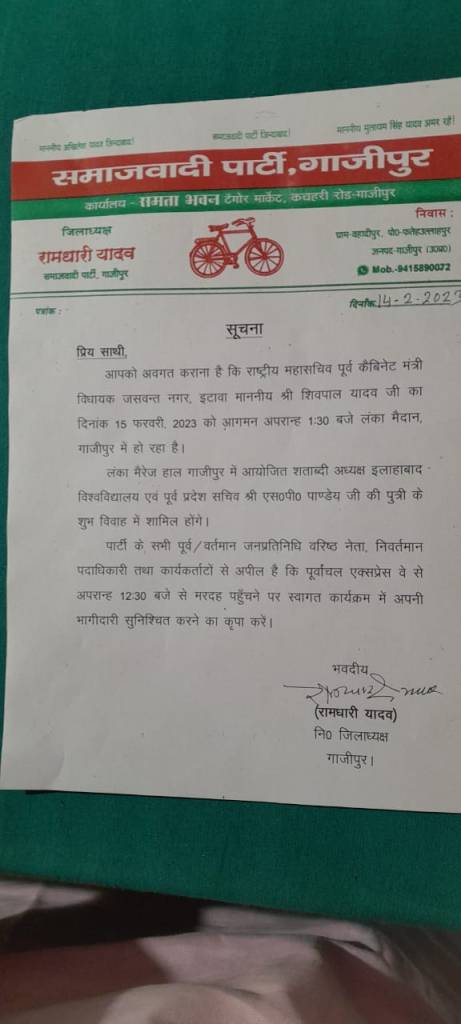 माननीय अखिलेश यादव जिन्दाबाद!
समाजवादी पार्टी जिन्दाबाद!
माननीय मुलायम सिंह यादव अमर रहें!
समाजवादी पार्टी, गाजीपुर
कार्यालय - समता भवन टैगोर मार्केट, कचहरी रोड-गाजीपुर
जिलाध्यक्ष
रामधारी यादव
समाजवादी पार्टी, गाजीपुर
निवास :
ग्राम-वहादीपुर, पो०-फतेहउल्लाहपुर
जनपद-गाजीपुर (उ०प्र०)
Mob.-9415890072
पत्रांक :
दिनाँक: 14-2-2023
सूचना
प्रिय साथी,
आपको अवगत कराना है कि राष्ट्रीय महासचिव पूर्व कैबिनेट मंत्री
विधायक जसवन्त नगर, इटावा माननीय श्री शिवपाल यादव जी का
दिनांक 15 फरवरी, 2023 को आगमन अपरान्ह 1:30 बजे लंका मैदान,
गाजीपुर में हो रहा है।
लंका मैरेज हाल गाजीपुर में आयोजित शताब्दी अध्यक्ष इलाहाबाद
विश्वविद्यालय एवं पूर्व प्रदेश सचिव श्री एस०पी० पाण्डेय जी की पुत्री के
शुभ विवाह में शामिल होंगे।
पार्टी के सभी पूर्व/वर्तमान जनप्रतिनिधि वरिष्ठ नेता, निवर्तमान
पदाधिकारी तथा कार्यकर्ताटों से अपील है कि पूर्वांचल एक्सप्रेस वे से
अपरान्ह 12:30 बजे से मरदह पहुँचने पर स्वागत कार्यक्रम में अपनी
भागीदारी सुनिश्चित करने का कृपा करें।
भवदीय
(रामधारी यादव)
नि० जिलाध्यक्ष
गाजीपुर।